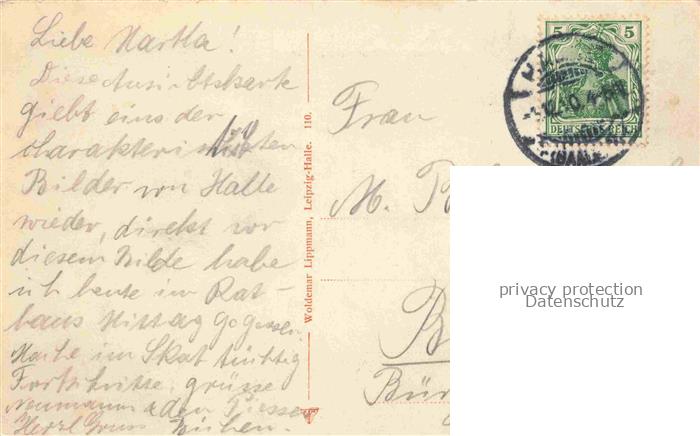 Liebe Martha!
Diese Ansichtskarte
giebt eins der
charakteristischsten
Bilder von Halle
wieder, direkt vor
diesem Bilde habe
ich heute im Rat-
haus Mittag gegessen.
Mache im Skat tüchtig
Fortschritte, grüsse
Neumann & den
Herzl Gruss
Woldemar Lippmann, Leipzig-Halle. 110.
Frau
M.
5 5
DEUTSCHES REICH
(SAALE)
privacy protection
Datenschutz